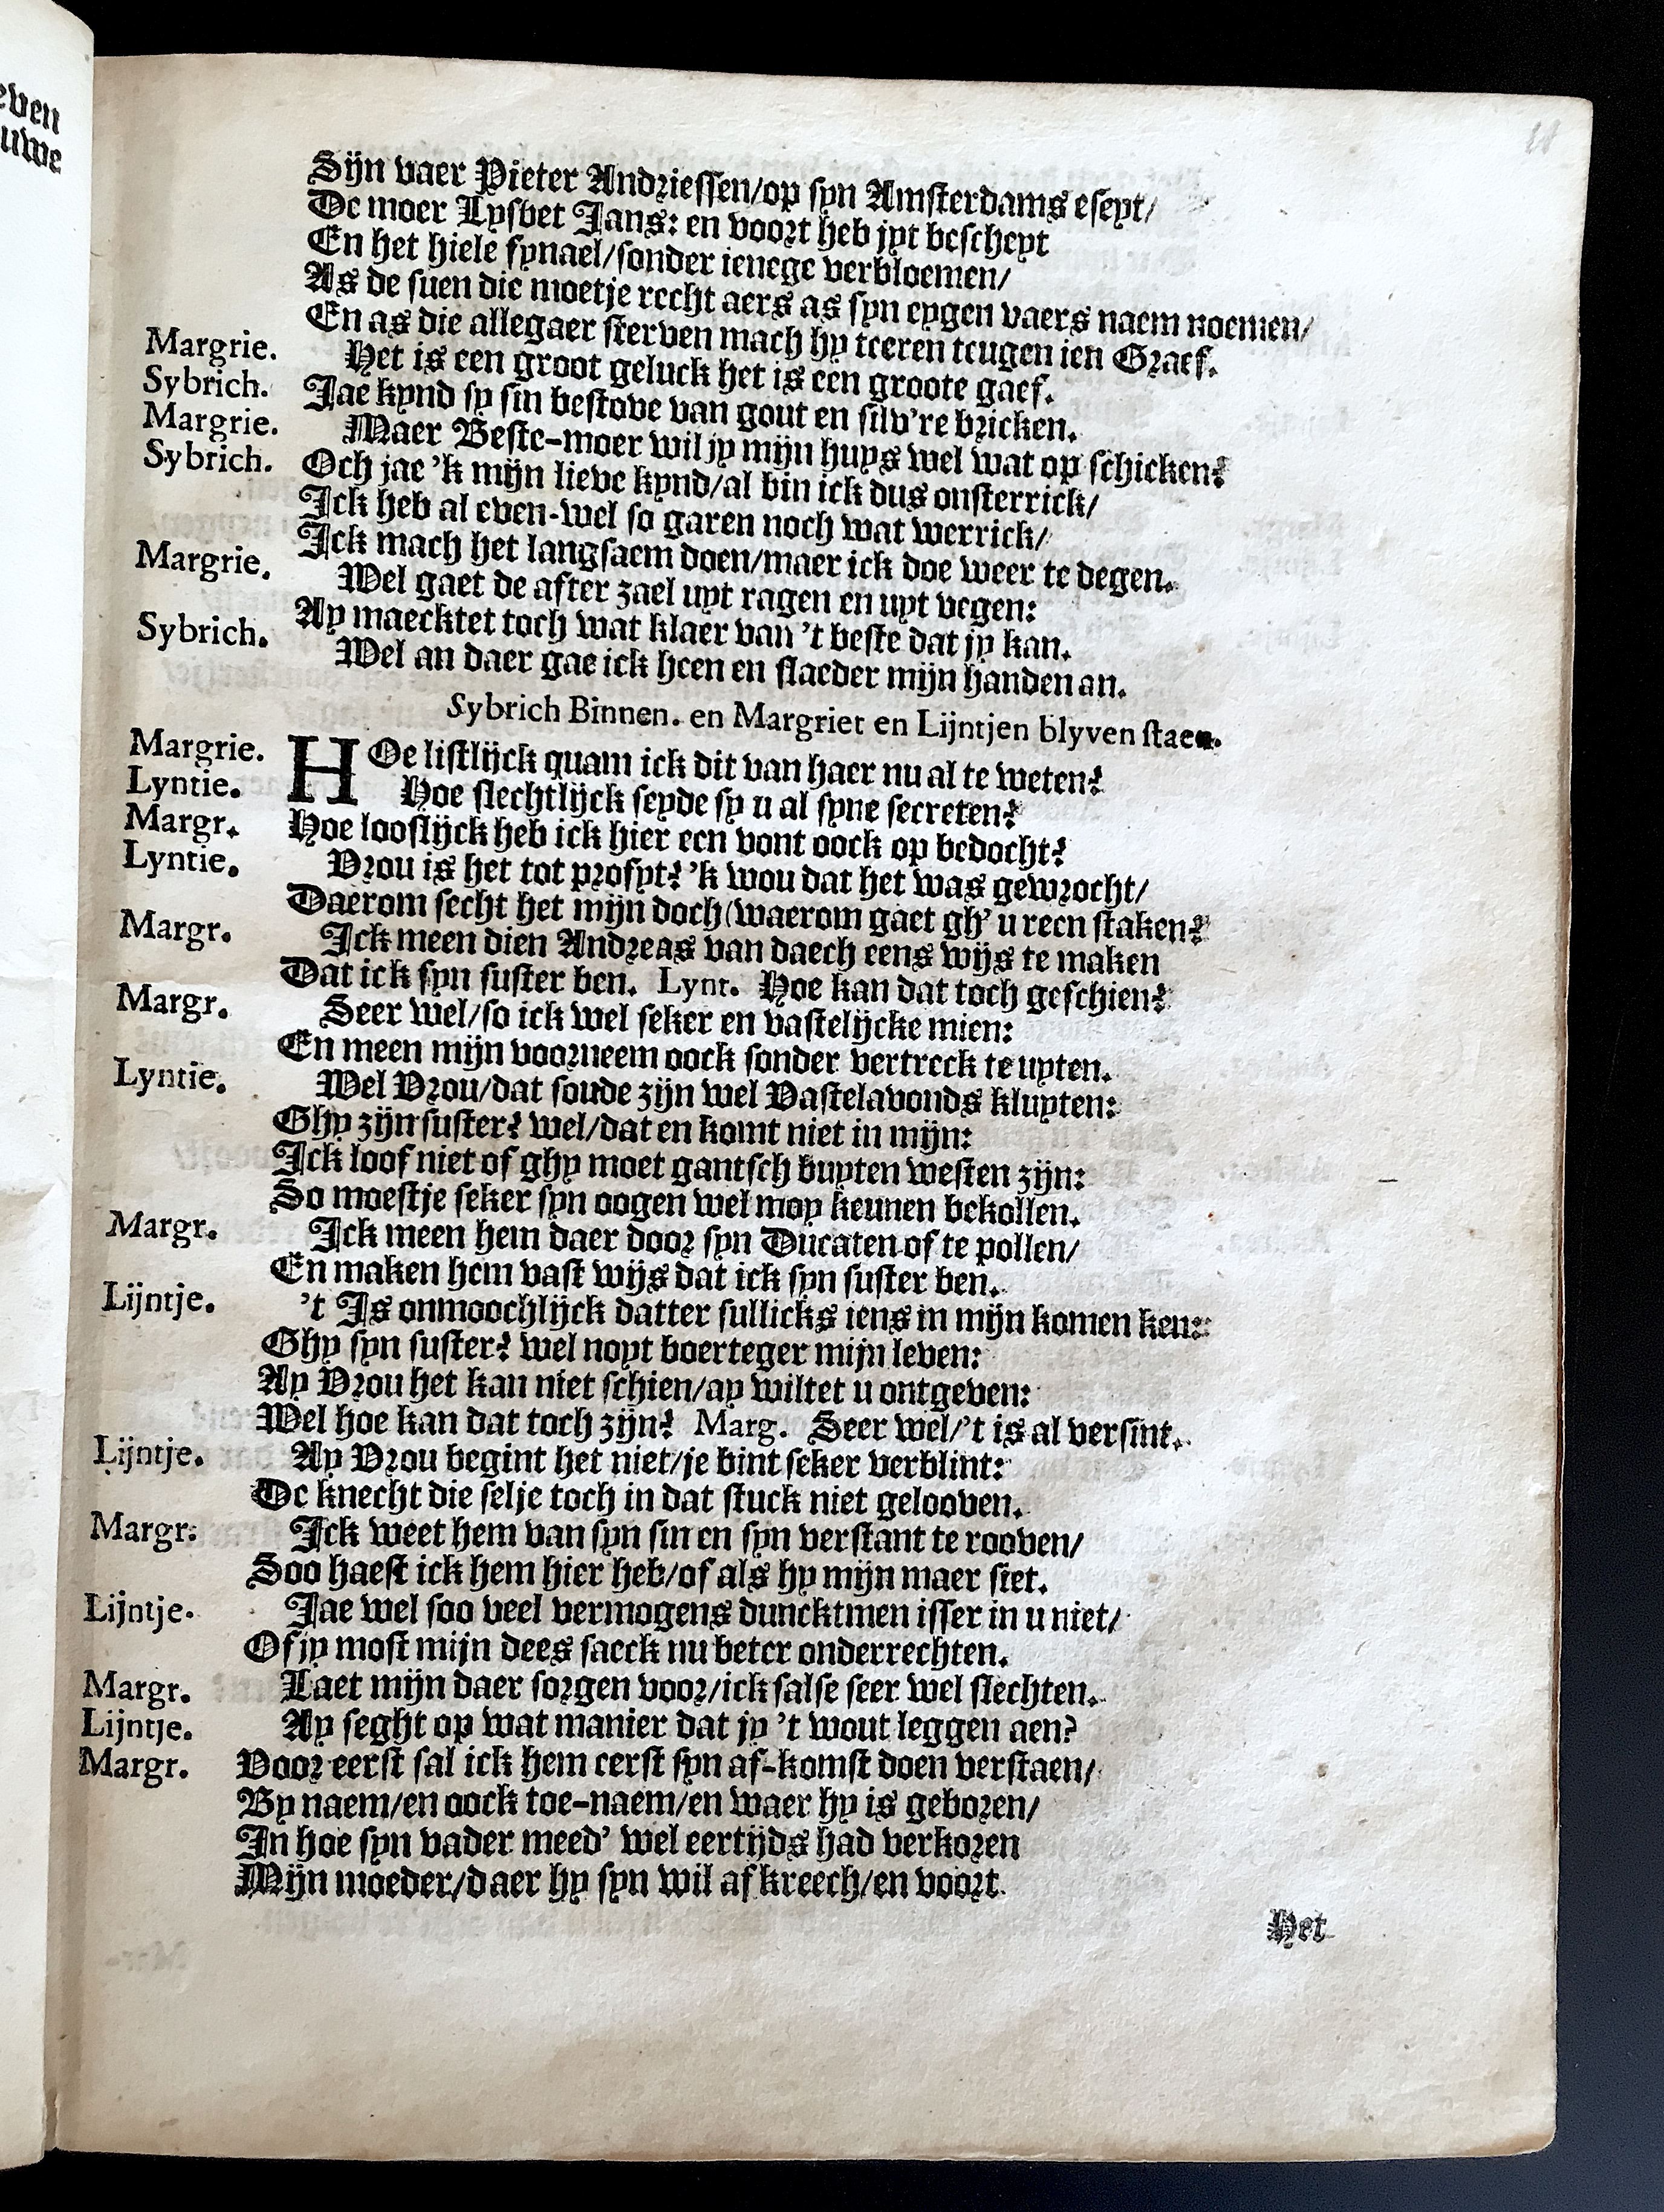 even
uwe
Sijn vaer Pieter Andriessen/op syn Amsterdams eseyt/
De moer Lysbet Jans: en voort heb jyt bescheyt
En het hiele fynael/sonder ienege verbloemen/
As de suen die moetje recht aers as syn eygen vaers naem noemen/
En as die allegaer sterven mach hy teeren teugen ien Graef.
Margrie. Het is een groot geluck het is een groote gaef.
Sybrich. Jae kynd sy sin bestove van gout en silv're bricken.
Margrie. Maer Beste-moer wil jy mijn huys wel wat op schicken?
Sybrich. Och jae 'k mijn lieve kynd/al bin ick dus onsterrick/
Ick heb al even-wel so garen noch wat werrick/
Ick mach het langsaem doen/maer ick doe weer te degen.
Margrie. Wel gaet de after zael uyt ragen en uyt vegen:
Ay maecktet toch wat klaer van 't beste dat jy kan.
Sybrich. Wel an daer gae ick heen en slaeder mijn handen an.
Sybrich Binnen. en Margriet en Lijntjen blyven staen.
Margrie. HOe listlijck quam ick dit van haer nu al te weten?
Lyntie. Hoe slechtlijck seyde sy u al syne secreten?
Margr. Hoe looslijck heb ick hier een vont oock op bedocht?
Lyntie. Vrou is het tot profyt? 'k wou dat het was gewrocht/
Daerom secht het mijn doch (waerom gaet gh' u reen staken?
Margr. Ick meen dien Andreas van daech eens wijs te maken
Dat ick syn suster ben. Lynt. Hoe kan dat toch geschien?
Margr. Seer wel/so ick wel seker en vastelijcke mien:
En meen mijn voorneem oock sonder vertreck te uyten.
Lyntie. Wel Vrou/dat soude zijn wel Vastelavonds kluyten:
Ghy zijn suster? wel/dat en komt niet in mijn:
Ick loof niet of ghy moet gantsch buyten westen zijn:
So moestje seker syn oogen wel moy keunen bekollen.
Margr. Ick meen hem daer door syn Ducaten of te pollen/
En maken hem vast wijs dat ick syn suster ben.
Lijntje. 't Is onmoochlijck datter sullicks iens in mijn komen ken:
Ghy syn suster? wel noyt boerteger mijn leven:
Ay Vrou het kan niet schien/ay wiltet u ontgeven:
Wel hoe kan dat toch zijn? Marg. Seer wel/'t is al versint.
Lijntje. Ay Vrou begint het niet/je bint seker verblint:
De knecht die selje toch in dat stuck niet gelooven.
Margr. Ick weet hem van syn sin en syn verstant te rooven/
Soo haest ick hem hier heb/of als hy mijn maer siet.
Lijntje. Jae wel soo veel vermogens duncktmen isser in u niet/
Of jy most mijn dees saeck nu beter onderrechten.
Margr. Laet mijn daer sorgen voor/ick salse seer wel slechten.
Lijntje. Ay seght op wat manier dat jy 't wout leggen aen?
Margr. Voor eerst sal ick hem eerst syn af-komst doen verstaen/
By naem/en oock toe-naem/en waer hy is geboren/
In hoe syn vader meed' wel eertijds had verkoren
Mijn moeder/daer hy syn wil af kreech/en voort
Het